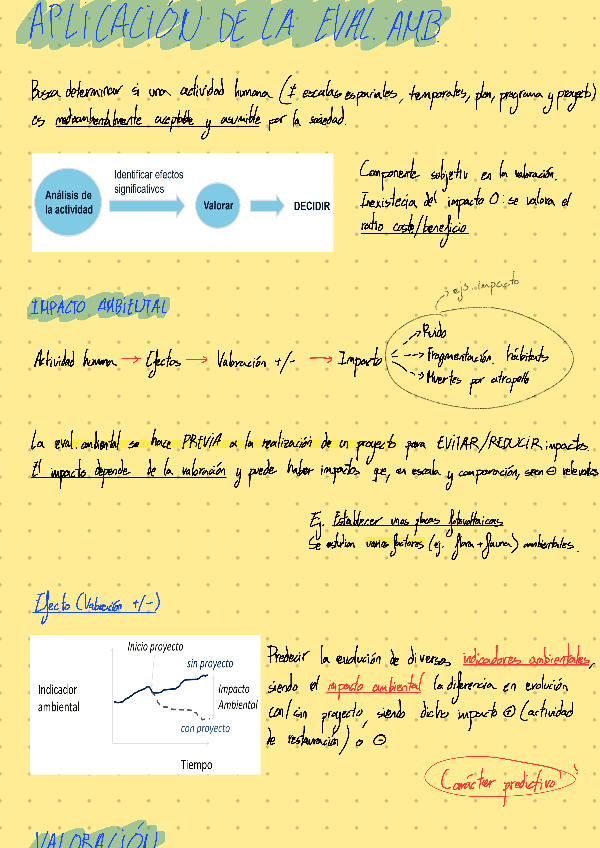 APLICACIÓN DE LA EVAL. AMB.
Busca determinar si una actividad humana (≠ escalas espaciales, temporales, plan, programa y proyecto)
es medioambientalmente aceptable y asumible por la sociedad.
Análisis de la actividad
Identificar efectos significativos
Valorar
DECIDIR
Componente subjetiv en la valoración.
Inexistecia del impacto 0: se valora el
ratio coste/beneficio
IMPACTO AMBIENTAL
ejs. impacto
Actividad humana → Efectos → Valoración +/- → Impacto
Ruido
Fragmentación hábitats
Muertes por atropello
La eval. ambiental se hace PREVIA a la realización de un proyecto para EVITAR/REDUCIR impactos.
El impacto depende de la valoración y puede haber impactos qe, en escala y comparación, sean ⊖ relevantes
Ej. Establecer unas placas fotovoltaicas
Se estudian varios factores (ej. flora + fauna) ambientales.
Efecto (Valoración +/-)
Inicio proyecto
sin proyecto
Indicador ambiental
Impacto Ambiental
con proyecto
Tiempo
Predecir la evolución de diversos indicadores ambientales,
siendo el impacto ambiental la diferencia en evolución
con/sin proyecto, siendo dicho impacto ⊕ (actividad
de restauración) o ⊖
Carácter predictivo
VALORACIÓN